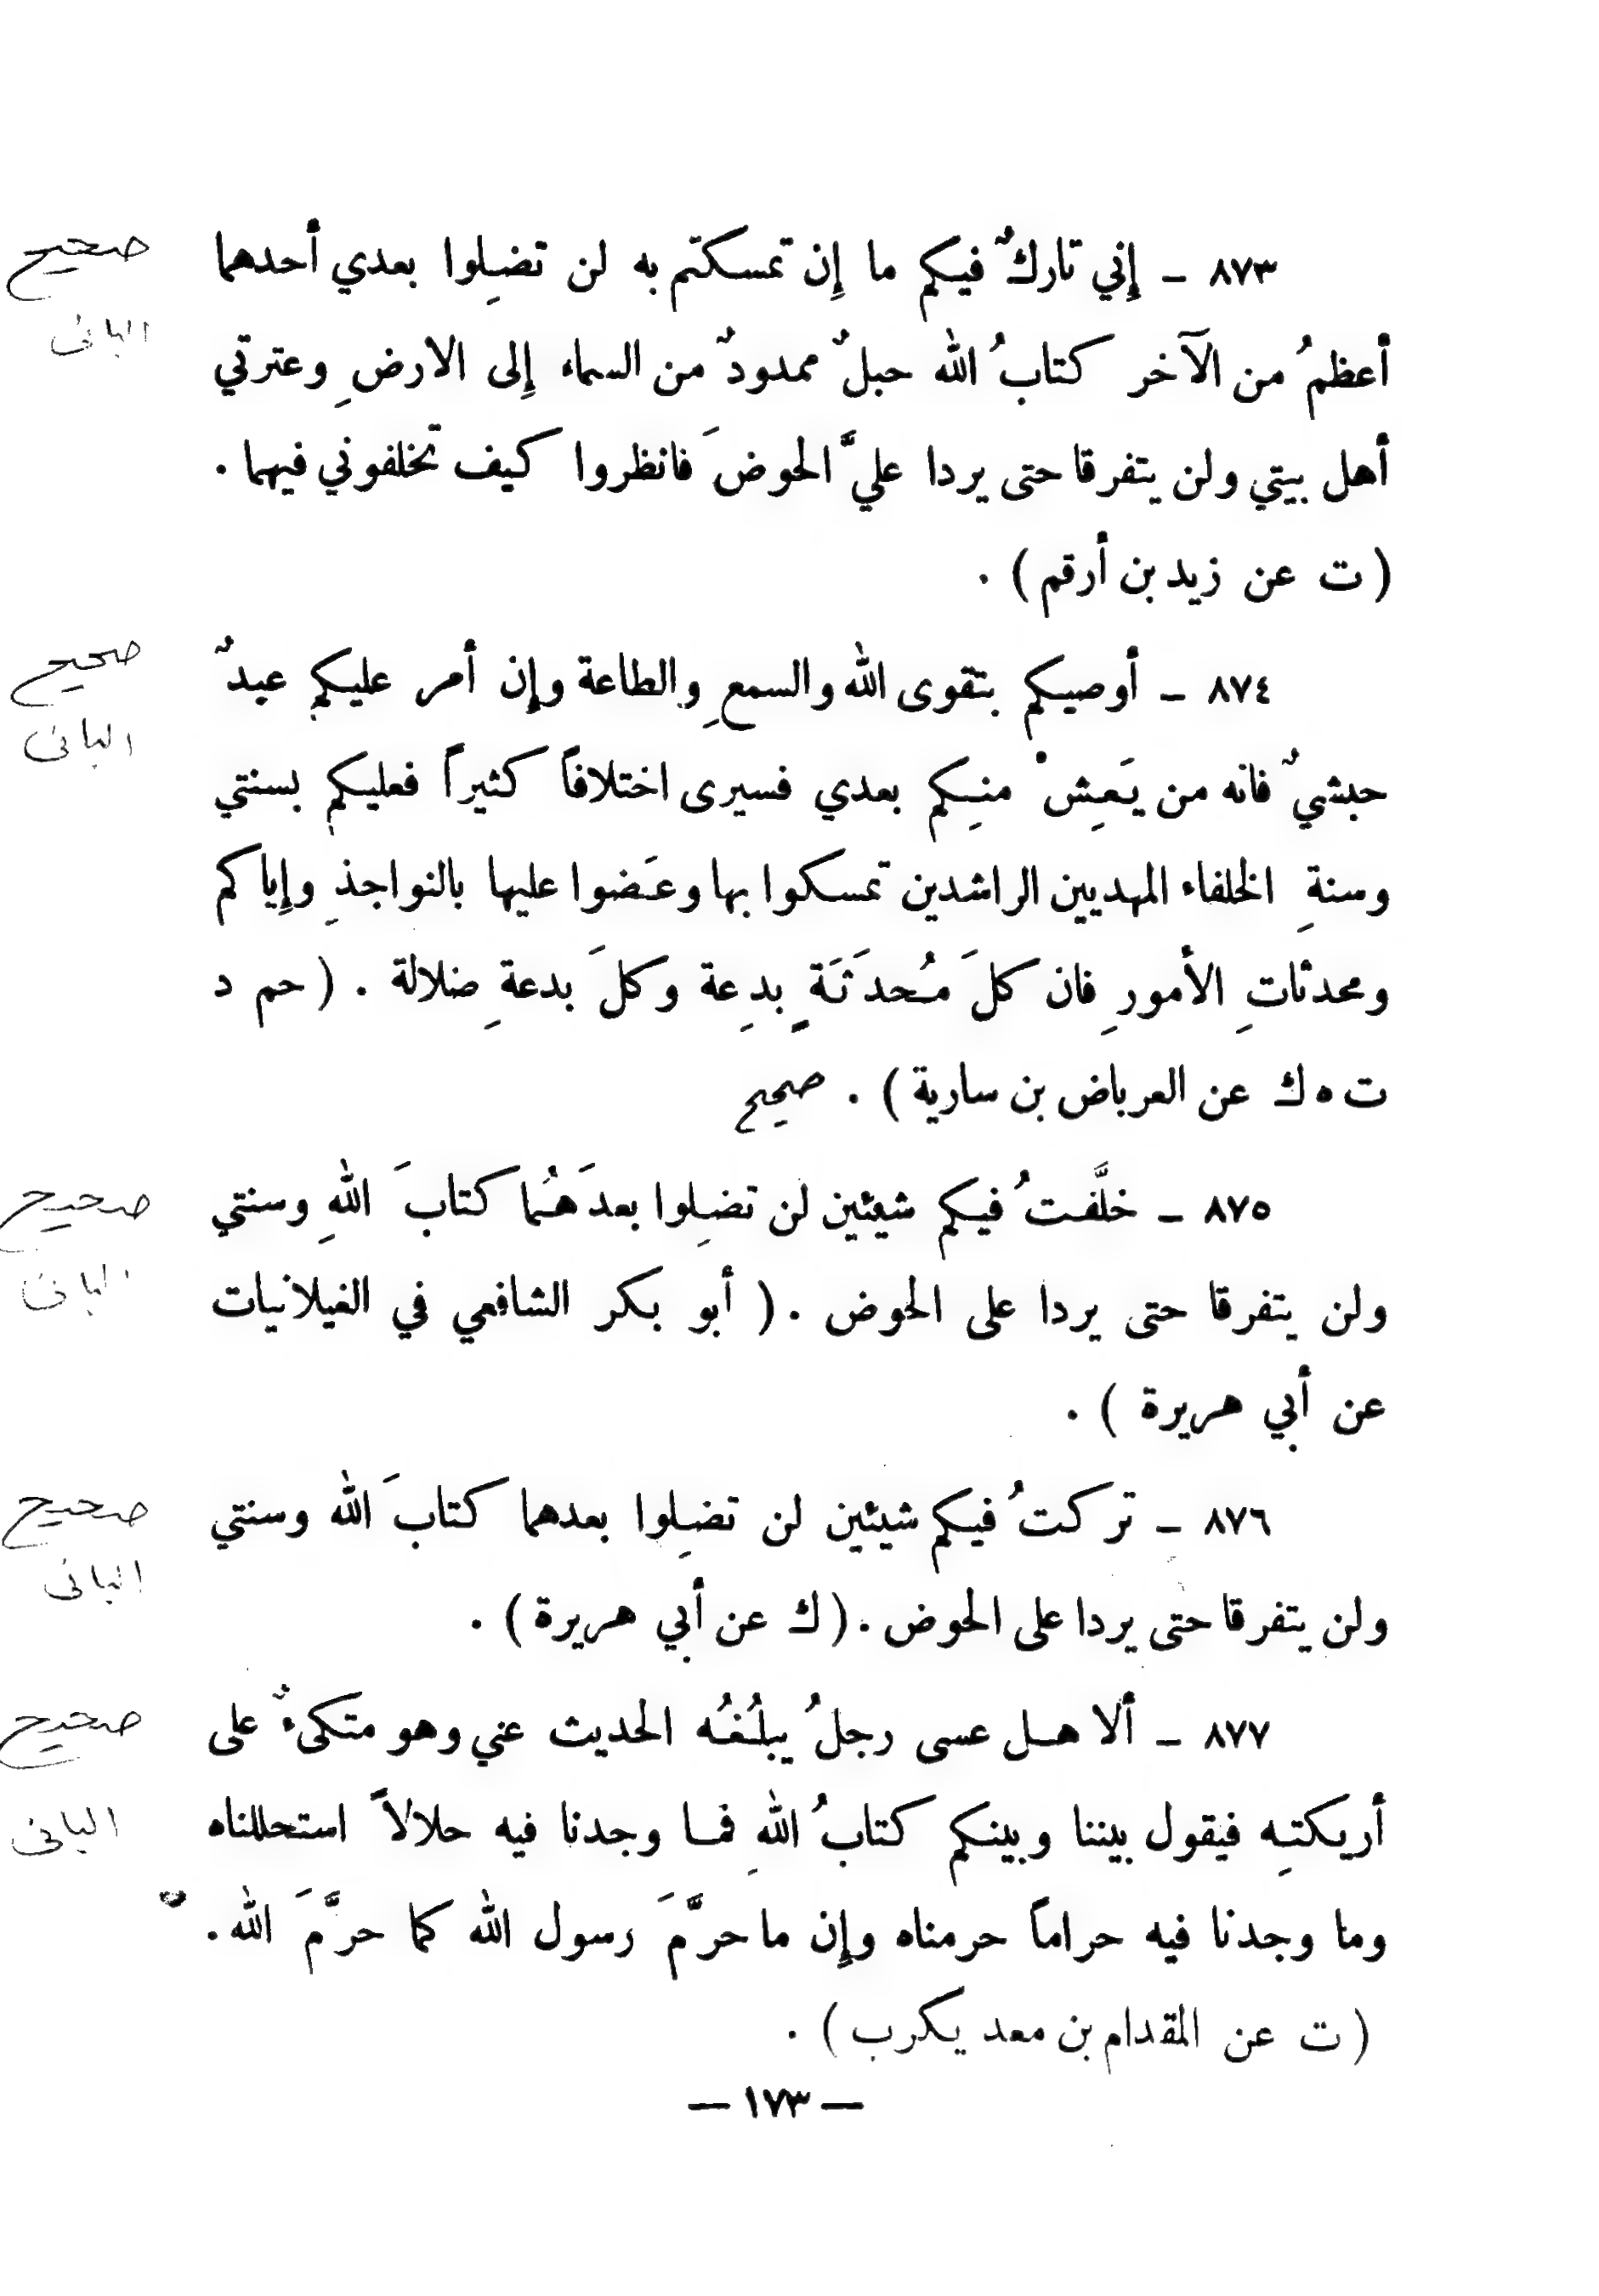 ٨٧٣ ـ إِني تاركٌ فيكم ما إِن تمسكتم به لن تضِلوا بعدي أحدهما
صحيح
الباني
أعظمُ من الآخر كتابُ الله حبلٌ ممدودٌ من السماء إِلى الارضِ وعترتي
أهل بيتي ولن يتفرقا حتى يردا عليَّ الحوضَ فانظروا كيف تخلفوني فيهما .
( ت عن زيد بن أرقم ) .
٨٧٤ ـ أوصيكم بتقوى الله والسمعِ والطاعة وإِن أمر عليكم عبدٌ
صحيح
الباني
حبشيٌ فانه من يَعِشْ منكم بعدي فسيرى اختلافاً كثيراً فعليكم بسنتي
وسنةِ الخلفاء المهديين الراشدين تمسكوا بها وعَضوا عليها بالنواجذِ وإِياكم
ومحدثاتِ الأمورِ فان كلَ مُحدَثَةٍ بدِعة وكلَ بدعةِ ضلالة . ( حم د
ت ه ك عن العرباض بن سارية ) . صحيح
٨٧٥ ـ خلَّفتُ فيكم شيئين لن تضِلوا بعدَهُما كتابَ اللهِ وسنتي
صحيح
الباني
ولن يتفرقا حتى يردا على الحوض . ( أبو بكر الشافعي في الغيلانيات
عن أبي هريرة ) .
٨٧٦ ـ تركتُ فيكم شيئين لن تضِلوا بعدهما كتابَ الله وسنتي
صحيح
الباني
ولن يتفرقا حتى يردا على الحوض . ( ك عن أبي هريرة ) .
٨٧٧ ـ ألا هل عسى رجلُ يبلُغُه الحديث عني وهو متكىءٌ على
صحيح
الباني
أريكتِه فيقول بيننا وبينكم كتابُ اللهِ فما وجدنا فيه حلالاً استحللناه
وما وجدنا فيه حراماً حرمناه وإِن ما حرَّمَ رسول الله كما حرَّمَ الله .
( ت عن المقدام بن معد يكرب ) .
— ١٧٣ —